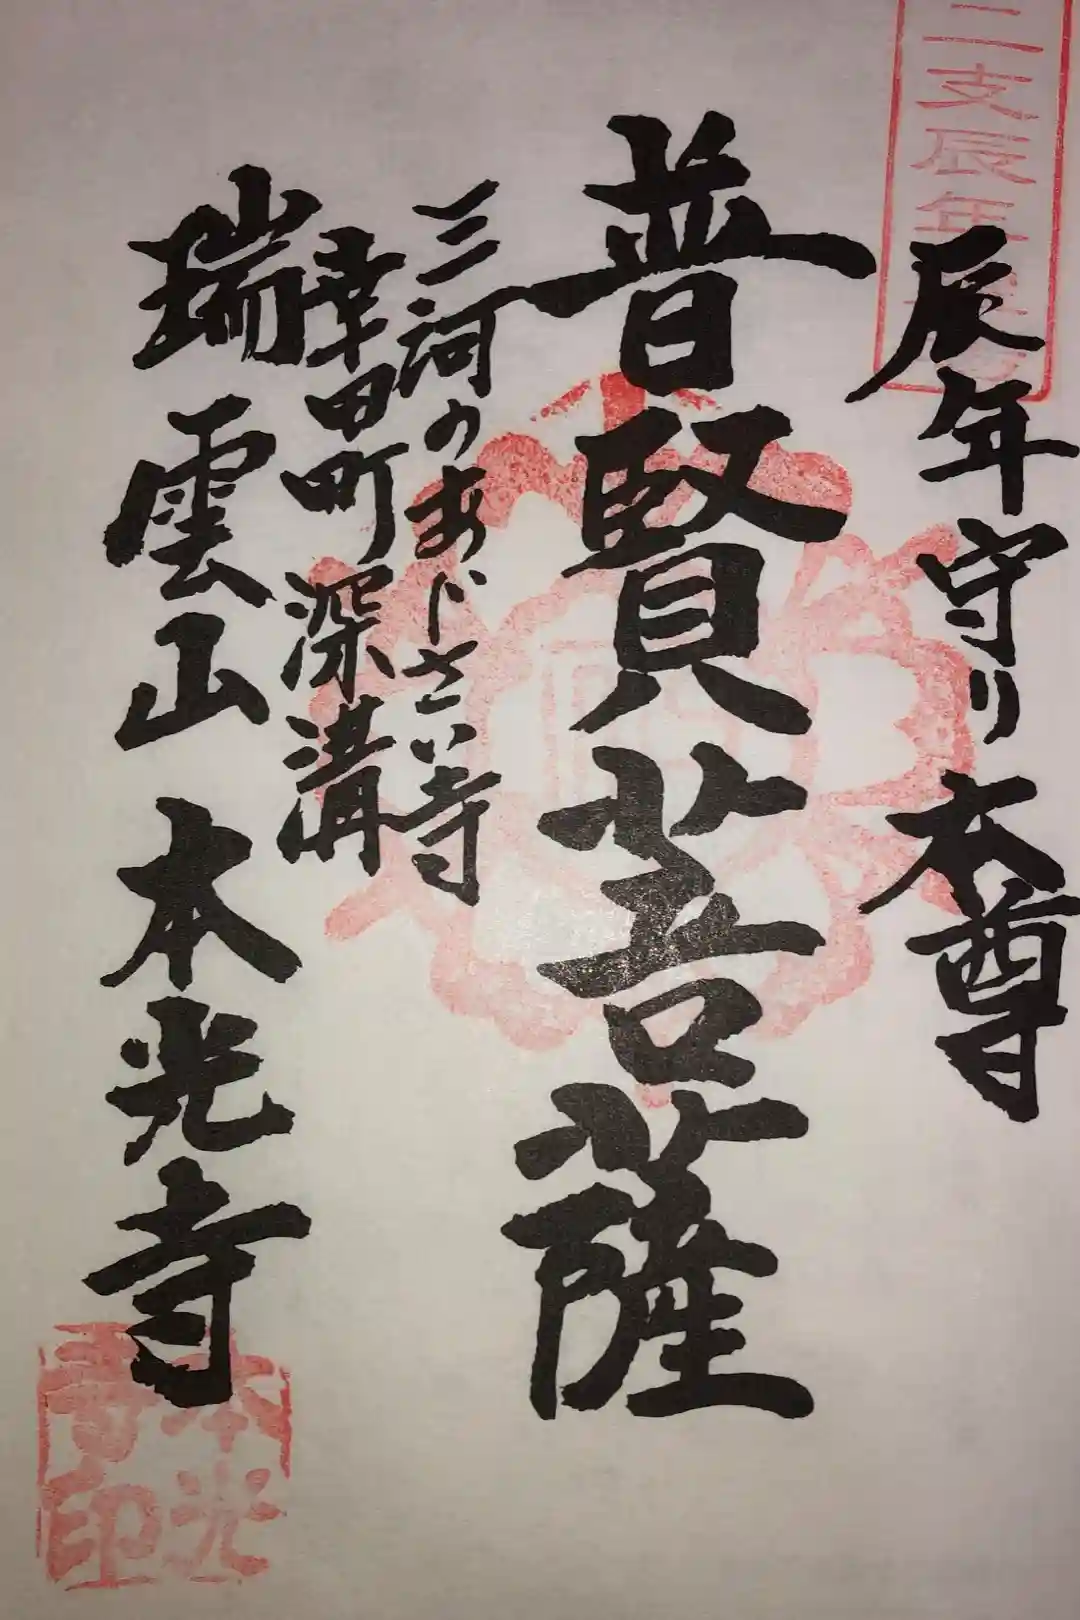 二支辰年
辰年守り本尊
普賢菩薩
三河のあじさい寺
幸田町深溝
瑞雲山本光寺
本光
寺印